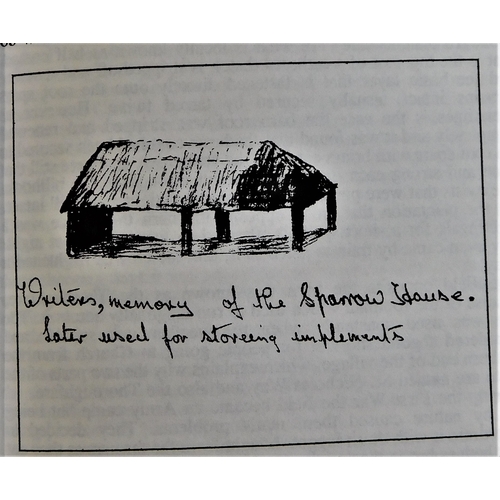 Writers, memory of the Sparrow House.
Later used for storeing implements